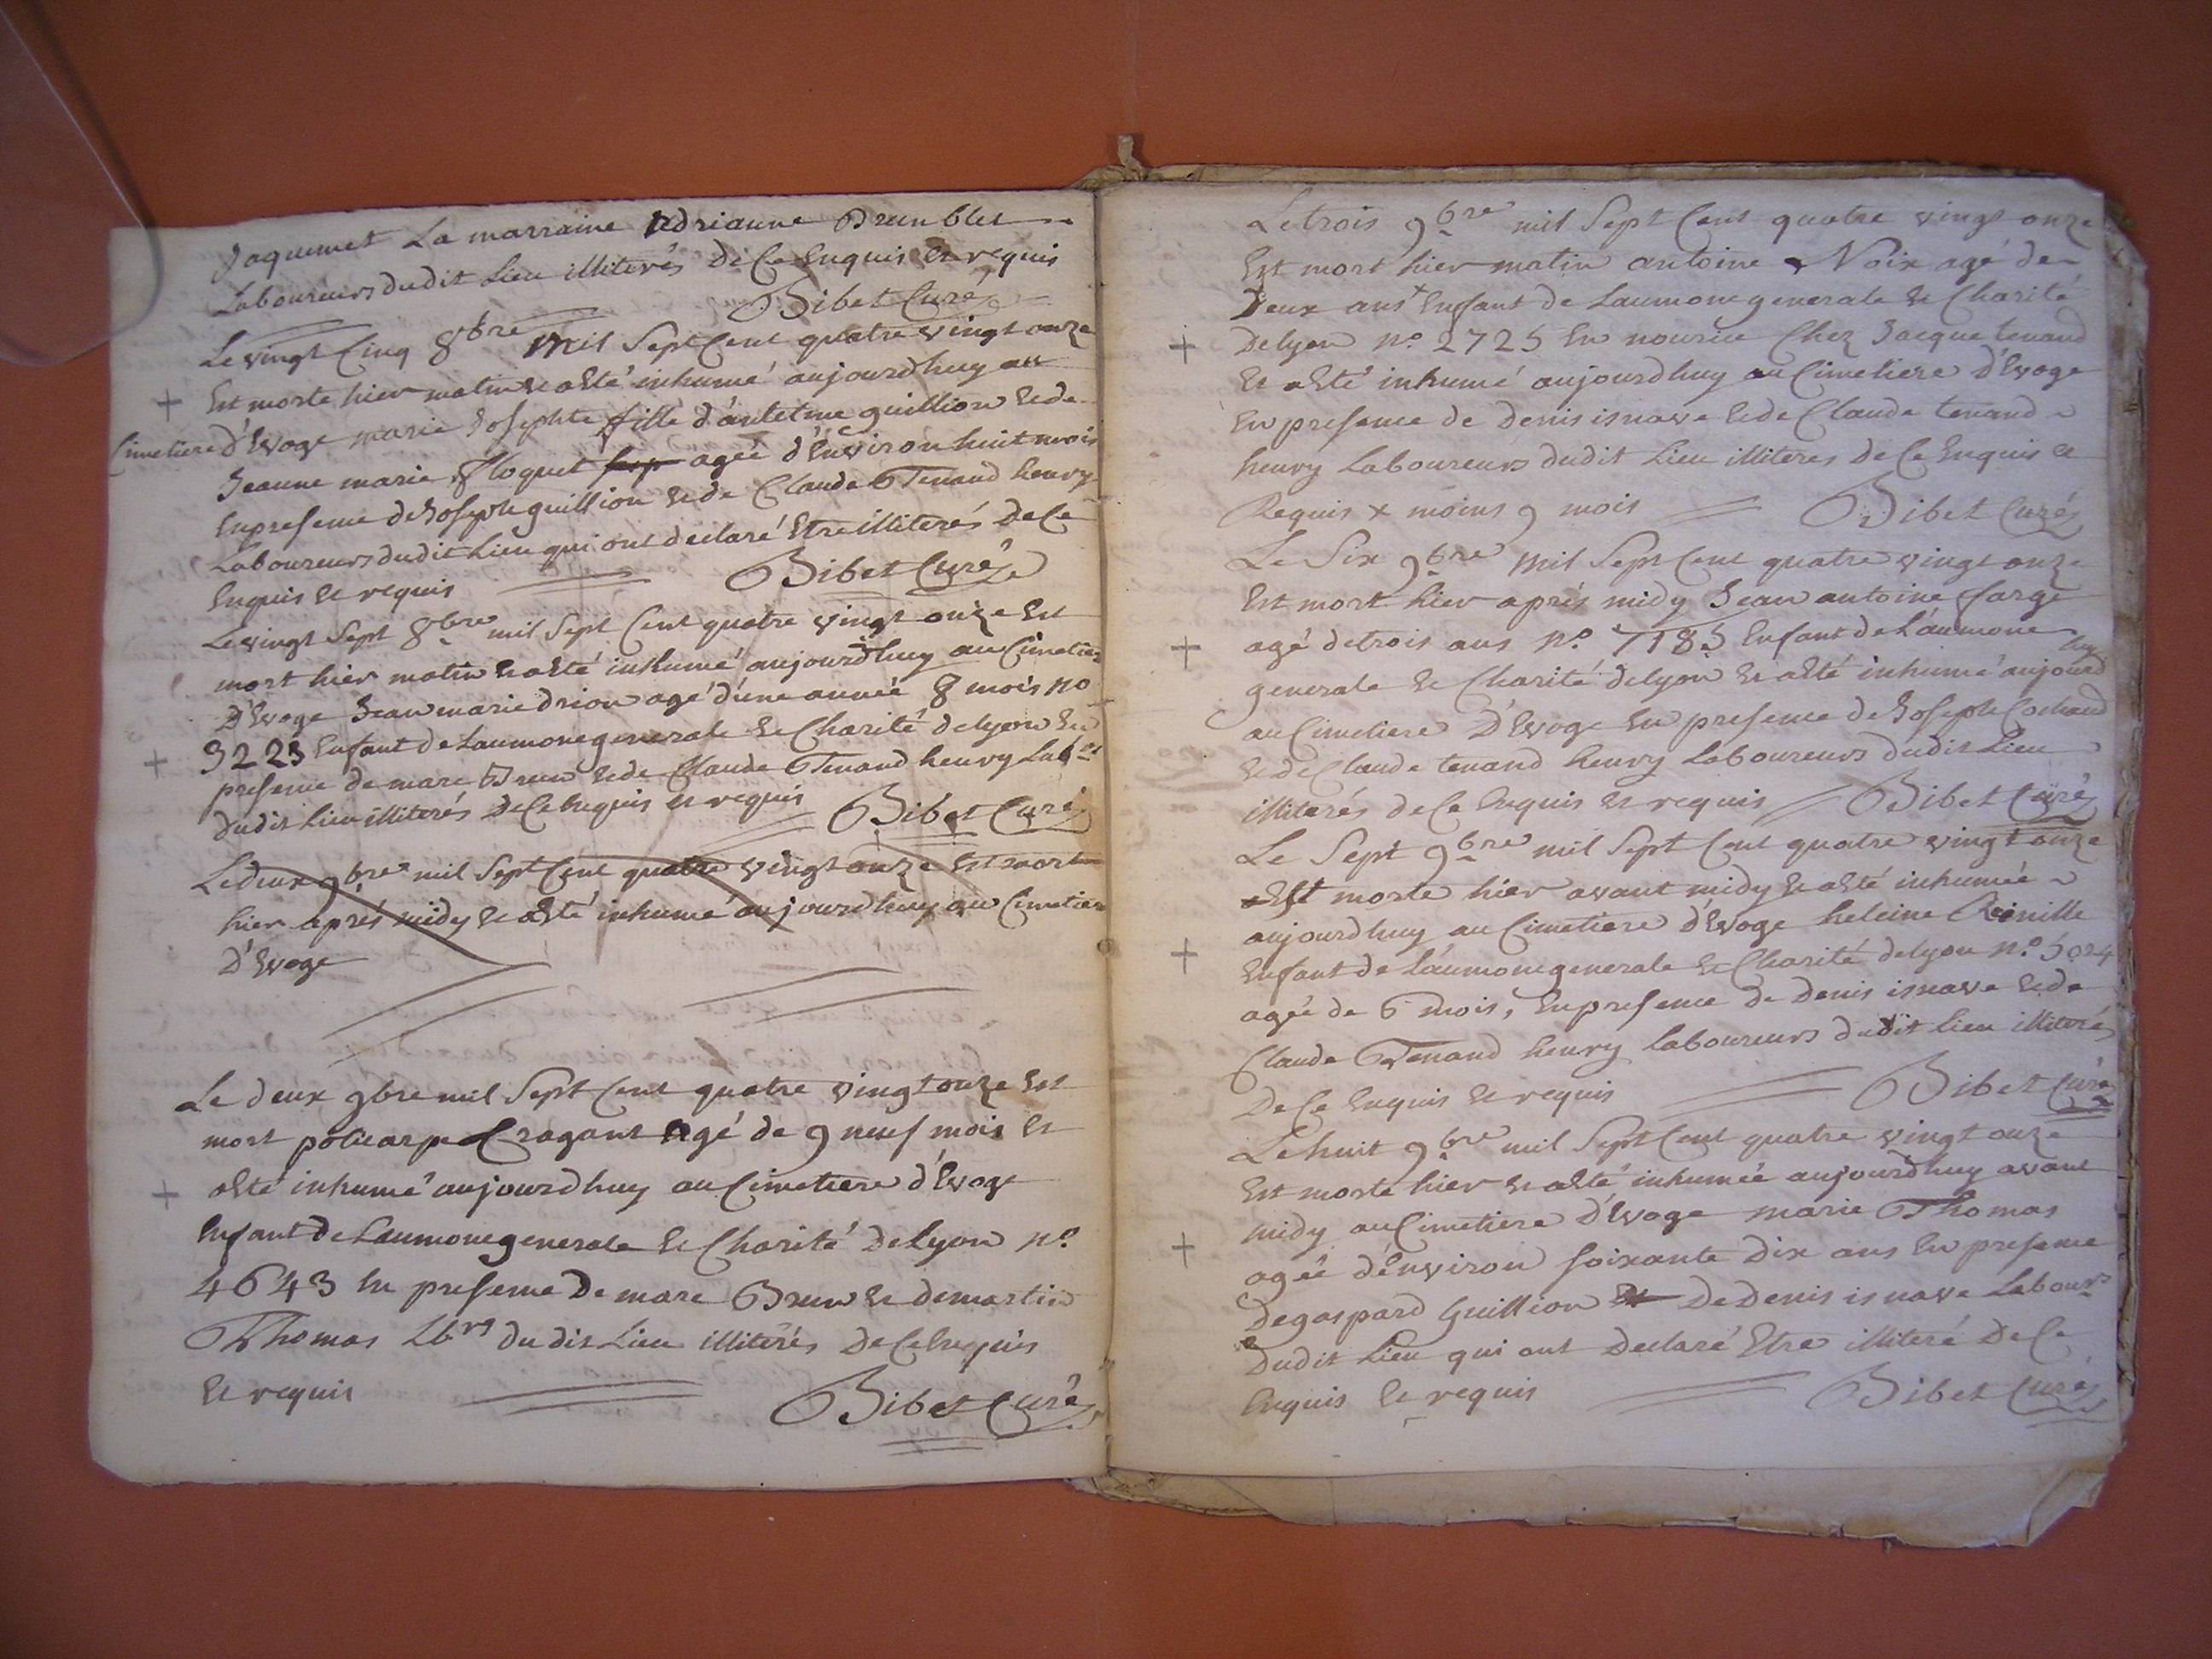 Jaquemet La marraine adrianne Brun blet
Laboureurs dudit Lieu illiterés de Ce Enquis et requis
Bibet Curé
Le vingt Cinq 8bre mil Sept Cent quatre vingt onze
Est morte hier matin et a Esté inhumé aujourdhuy au
Cimetiere d'Evoge marie Josephte fille d'antelme guillion et de
Jeanne marie floquet agée d'Environ huit mois
En presence de Joseph guillion et de Claude Tenand henry
Laboureurs dudit Lieu qui ont declaré Etre illiterés de Ce
Enquis et requis Bibet Curé
Le vingt Sept 8bre mil Sept Cent quatre vingt onze Est
mort hier matin et a Esté inhumé aujourdhuy au Cimetiere
D'Evoge Jean marie drion agé d'une année 8 mois no
3223 Enfant de Laumone generale et Charité de lyon En
presence de marc Brun et de Claude Tenand henry Labrs
dudit Lieu illiterés de Ce Enquis et requis Bibet Curé
Le deux 9bre mil Sept Cent quatre vingt onze Est mort
hier aprés midy et a Esté inhumé aujourdhuy au Cimetiere
D'Evoge
Le deux 9bre mil Sept Cent quatre vingt onze Est
mort policarpe Cragant agé de 9 neuf mois Et
a Esté inhumé aujourdhuy au Cimetiere d'Evoge
Enfant de Laumone generale et Charité de Lyon no
4643 En presence de marc Brun et de martin
Thomas Lbrs du dit Lieu illiterés de Ce Enquis
Et requis Bibet Curé
Le trois 9bre mil Sept Cent quatre vingt onze
Est mort hier matin antoine Noix agé de
Deux ans + Enfant de Laumone generale et Charité
De lyon no 2725 En nourice Chez Jacque tenand
Et a Esté inhumé aujourdhuy au Cimetiere d'Evoge
En presence de denis isnave et de Claude tenand
henry Laboureurs dudit Lieu illiteres de Ce Enquis et
Requis x moins 9 mois Bibet Curé
Le Six 9bre mil Sept Cent quatre vingt onze
Est mort hier aprés midy Jean antoine farge
agé de trois ans no 7185 Enfant de L'aumone
generale et Charité de lyon et a Esté inhumé aujourdhuy
au Cimetiere D'Evoge En presence de Joseph Cochand
et de Claude tenand henry Laboureurs dudit Lieu
illiterés de Ce Enquis et requis Bibet Curé
Le Sept 9bre mil Sept Cent quatre vingt onze
Est morte hier avant midy et a Esté inhumée
aujourdhuy au Cimetiere d'Evoge heleine Reinille
Enfant de L'aumone generale et Charité de lyon no 5024
agée de 6 mois, En presence de denis isnave et de
Claude Tenand henry laboureurs dudit lieu illiterés
De Ce Enquis et requis Bibet Curé
Le huit 9bre mil Sept Cent quatre vingt onze
Est morte hier et a Esté inhumée aujourdhuy avant
midy au Cimetiere d'Evoge marie Thomas
agée d'environ soixante Dix ans En presence
De gaspard Guillion Et De Denis isnave Labours
Dudit Lieu qui ont Declaré Etre illiteré De Ce
Enquis Et requis Bibet Curé